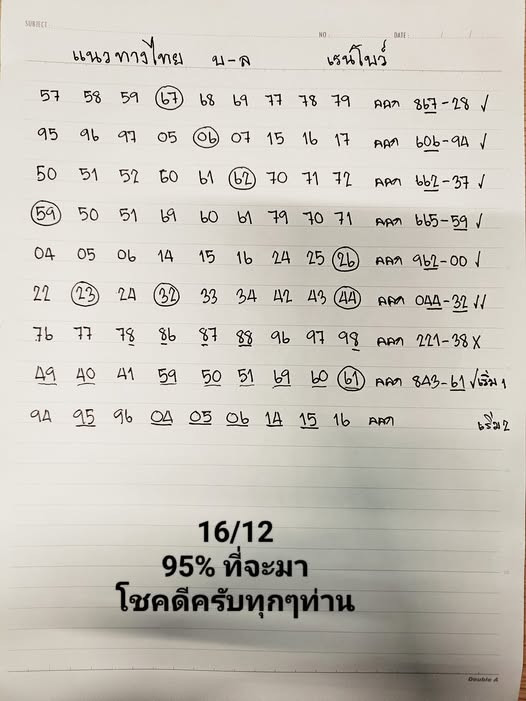 SUBJECT
NO: DATE: / /
แนวทางไทย บ-ล เรนโบว์
57 58 59 67 68 69 77 78 79 ออก 867-28 ✓
95 96 97 05 06 07 15 16 17 ออก 606-94 ✓
50 51 52 60 61 62 70 71 72 ออก 662-37 ✓
59 50 51 69 60 61 79 70 71 ออก 665-59 ✓
04 05 06 14 15 16 24 25 26 ออก 962-00 ✓
22 23 24 32 33 34 42 43 44 ออก 044-32 ✓✓
76 77 78 86 87 88 96 97 98 ออก 221-38 X
49 40 41 59 50 51 69 60 61 ออก 843-61 ✓ เริ่ม 1
94 95 96 04 05 06 14 15 16 ออก เริ่ม 2
16/12
95% ที่จะมา
โชคดีครับทุกๆท่าน
Double A